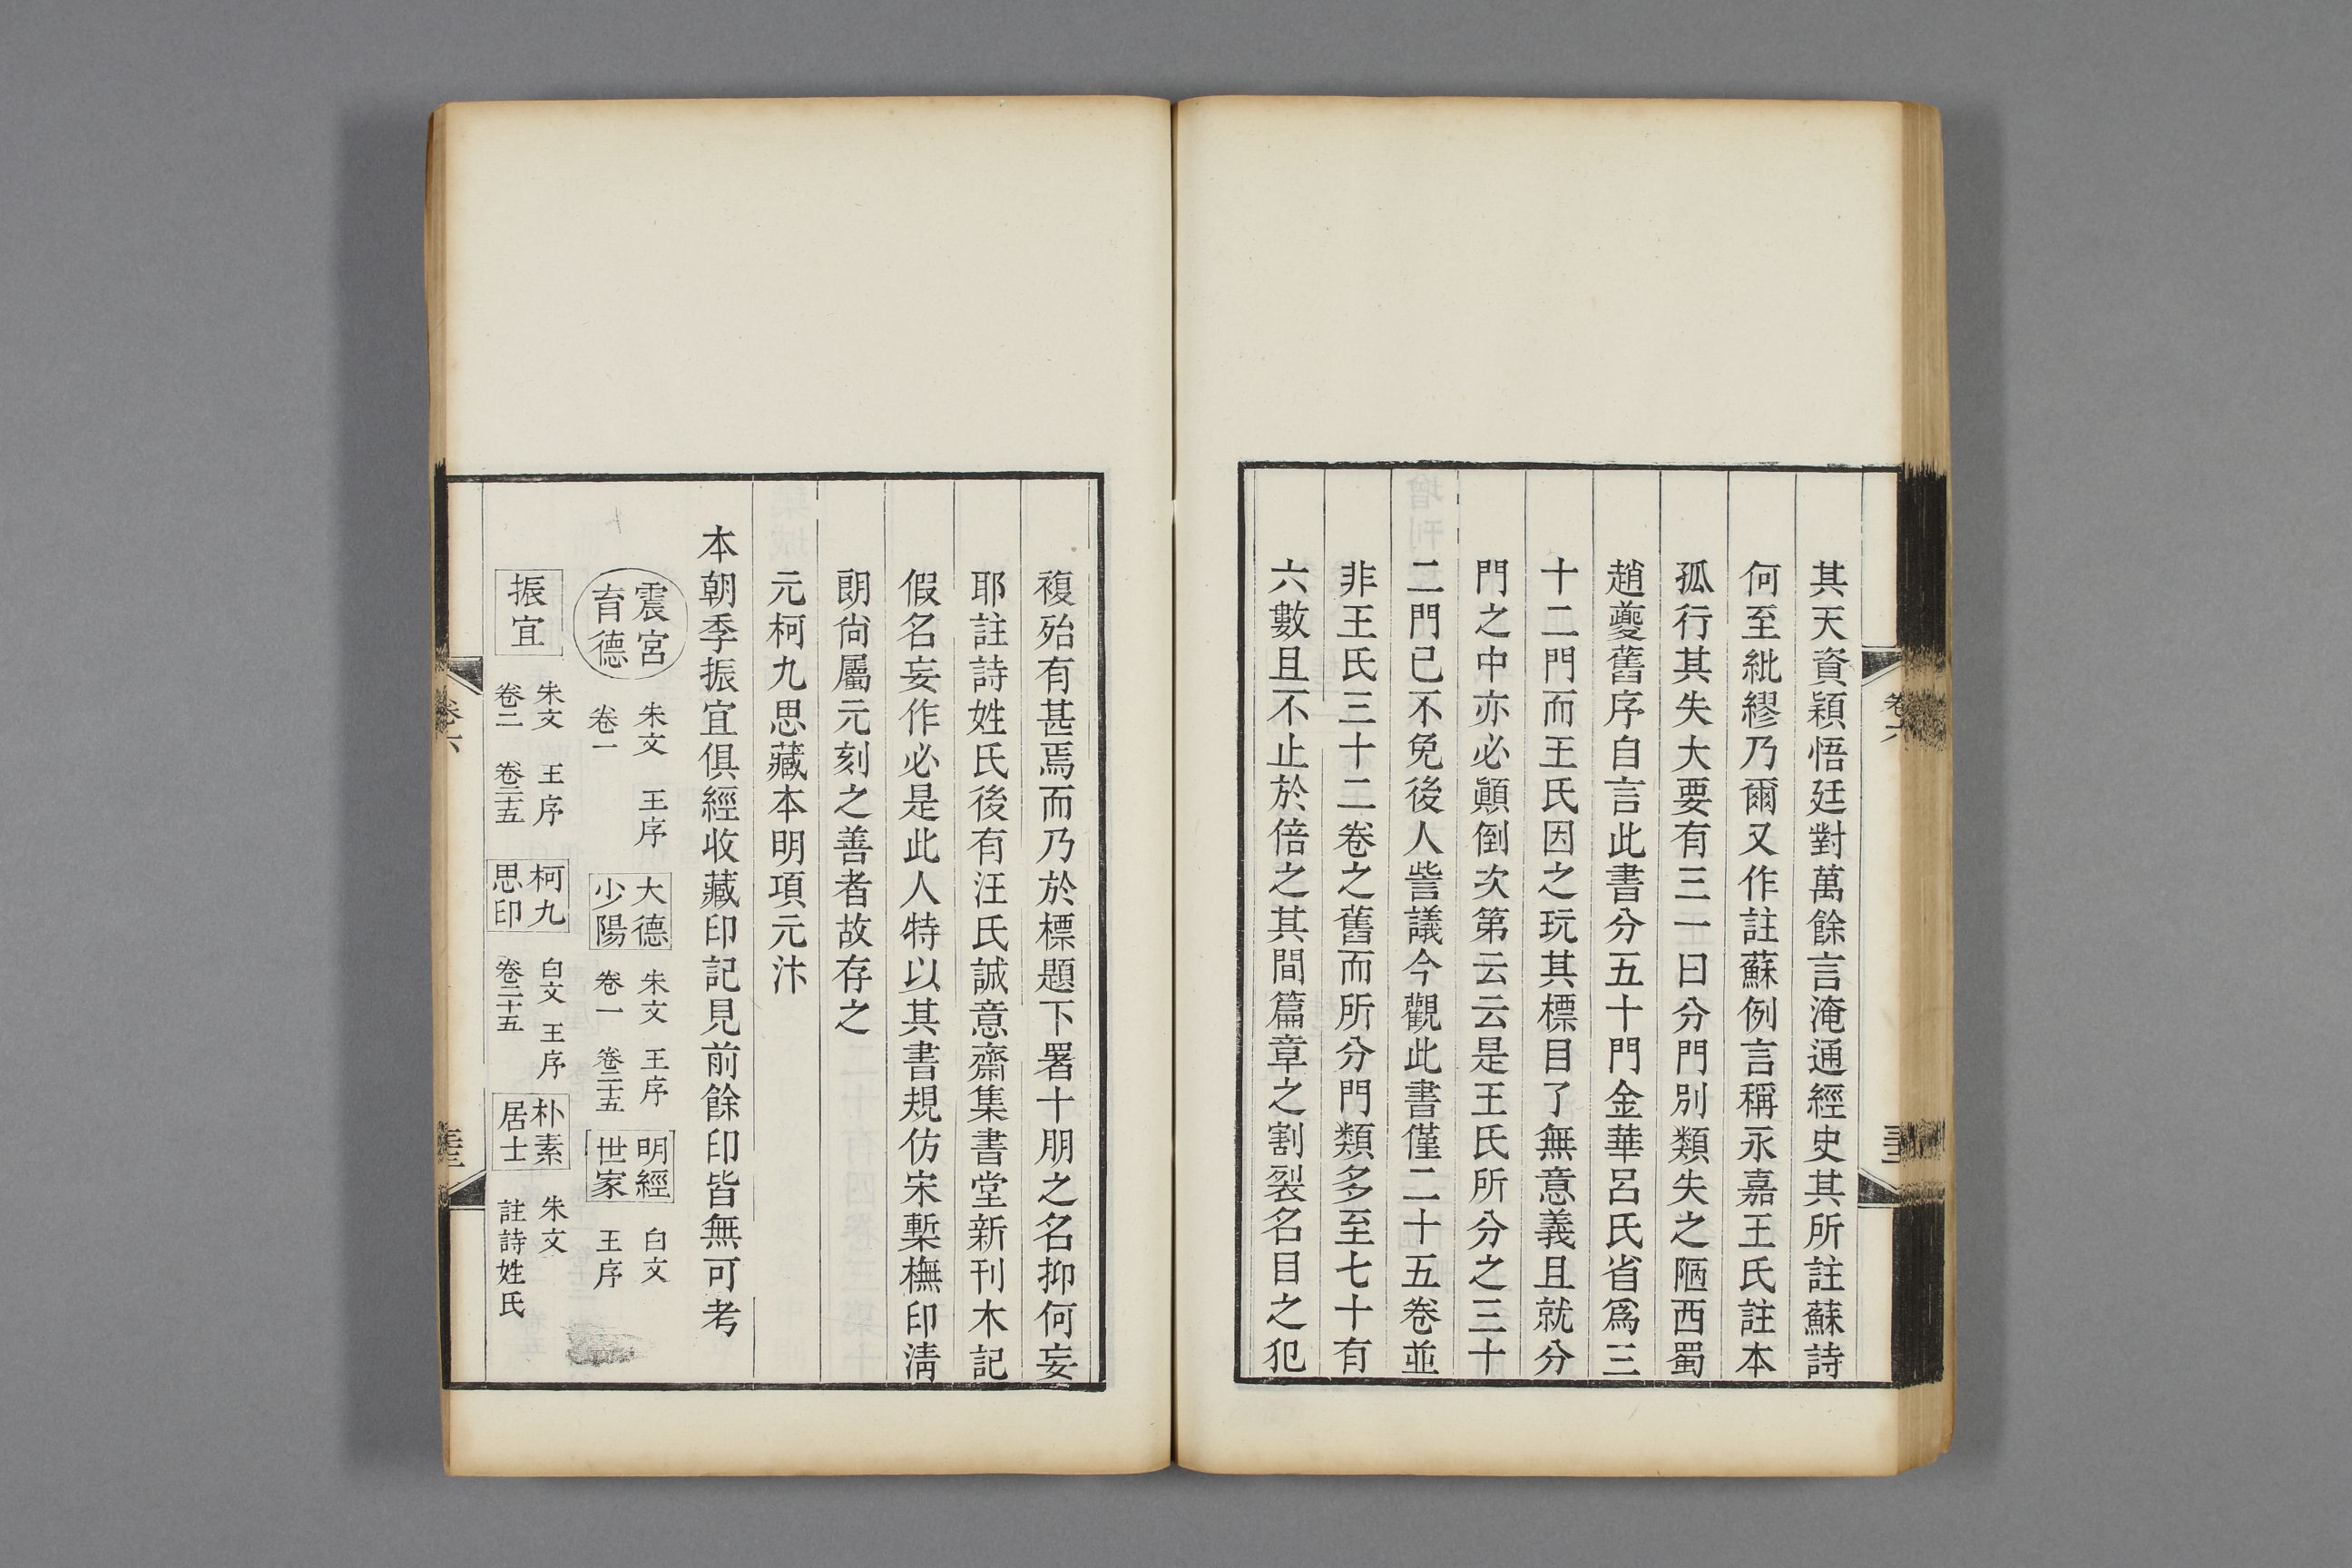 其天資穎悟廷對萬餘言淹通經史其所註蘇詩
何至紕繆乃爾又作註蘇例言稱永嘉王氏註本
孤行其失大要有三一曰分門別類失之陋西蜀
趙夔舊序自言此書分五十門金華呂氏省爲三
十二門而王氏因之玩其標目了無意義且就分
門之中亦必顚倒次第云云是王氏所分之三十
二門已不免後人訾議今觀此書僅二十五卷並
非王氏三十二卷之舊而所分門類多至七十有
六數且不止於倍之其間篇章之割裂名目之犯
卷六
複殆有甚焉而乃於標題下署十朋之名抑何妄
耶註詩姓氏後有汪氏誠意齋集書堂新刊木記
假名妄作必是此人特以其書規仿宋槧橅印淸
朗尙屬元刻之善者故存之
元柯九思藏本明項元汴
本朝季振宜俱經收藏印記見前餘印皆無可考
震宮育德 朱文 王序 卷一 大德少陽 朱文 王序 卷一 卷二十五 明經世家 白文 王序
振宜 朱文 王序 卷二 卷二十五 柯九思印 白文 王序 卷二十五 朴素居士 朱文 註詩姓氏
卷六